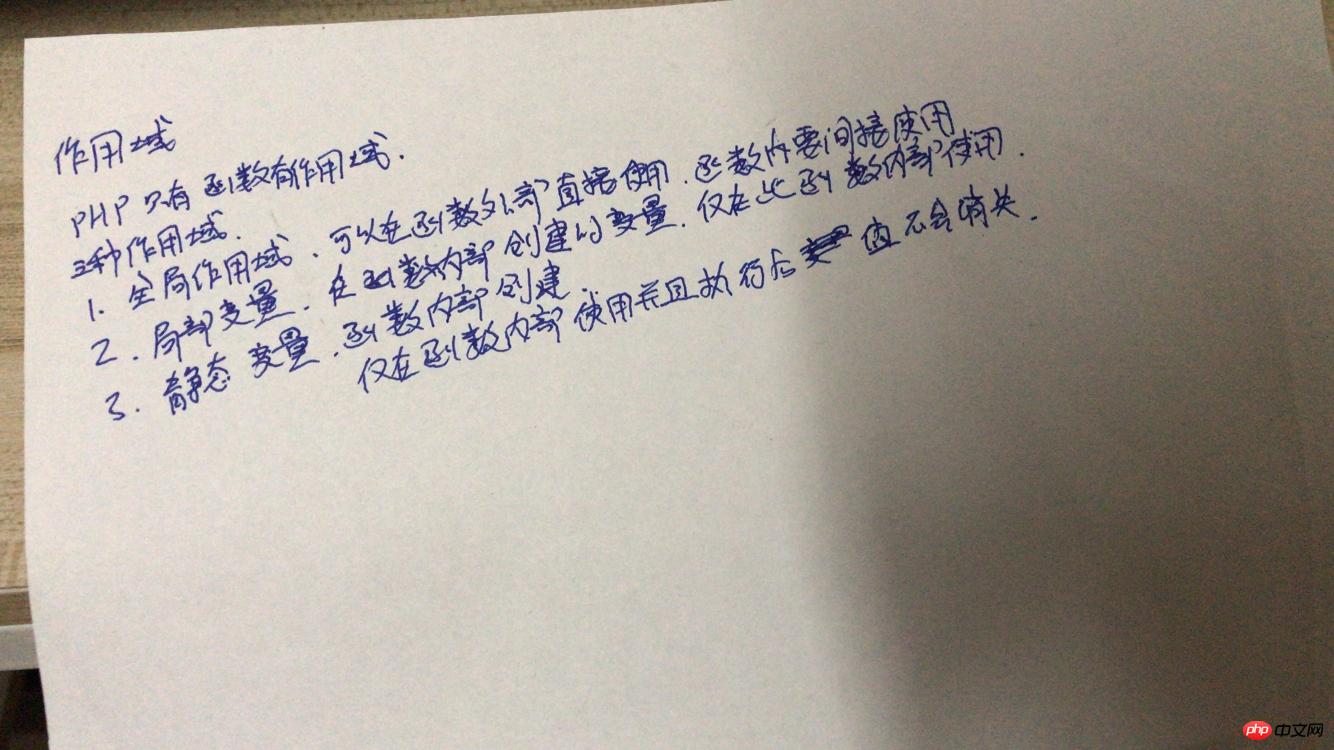 作用域
PHP 只有函数有作用域.
三种作用域.
1. 全局作用域. 可以在函数外部直接使用. 函数内要间接使用
2. 局部变量. 在函数内部创建的变量. 仅在此函数内部使用.
3. 静态变量. 函数内部创建.
仅在函数内部使用并且执行后 值不会消失.
php 中文网